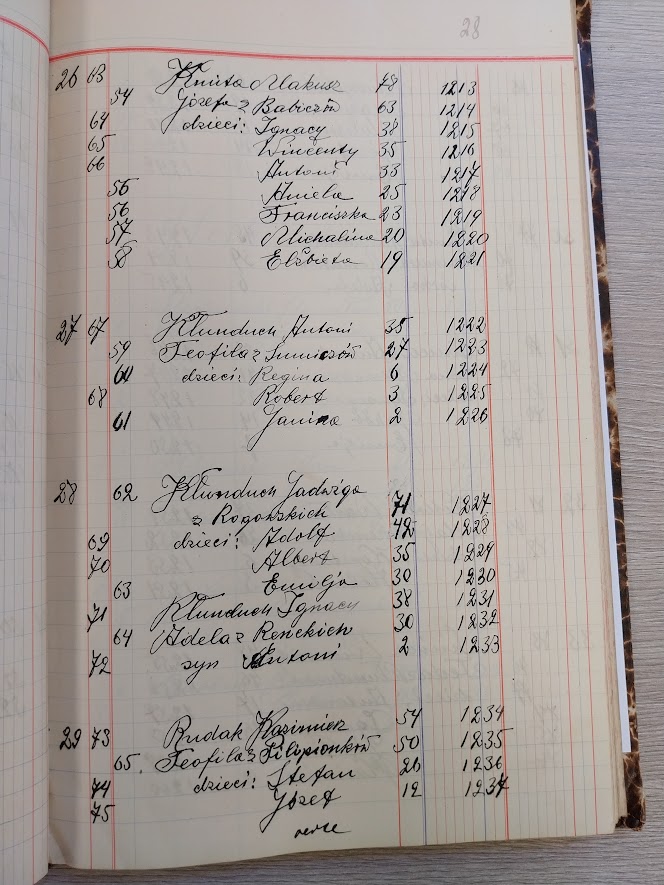 28
26 63 Kmita Makusz 78 1213
54 Józefa z Babiczów 63 1214
64 dzieci: Ignacy 38 1215
65 Wincenty 35 1216
66 Antoni 33 1217
55 Aniela 25 1218
56 Franciszka 23 1219
57 Michalina 20 1220
58 Elżbieta 19 1221
27 67 Kłunduch Antoni 35 1222
59 Teofila z 27 1223
60 dzieci: Regina 6 1224
68 Robert 3 1225
61 Janina 2 1226
28 62 Kłunduch Jadwiga
z Rogowskich 71 1227
69 dzieci: Adolf 42 1228
70 Albert 35 1229
63 Emilja 30 1230
71 Kłunduch Ignacy 38 1231
64 Adela z Renckich 30 1232
72 syn Antoni 2 1233
29 73 Rudak Kazimierz 54 1234
65. Teofila z Filipionków 50 1235
74 dzieci: Stefan 26 1236
75 Józef 12 1237
verte